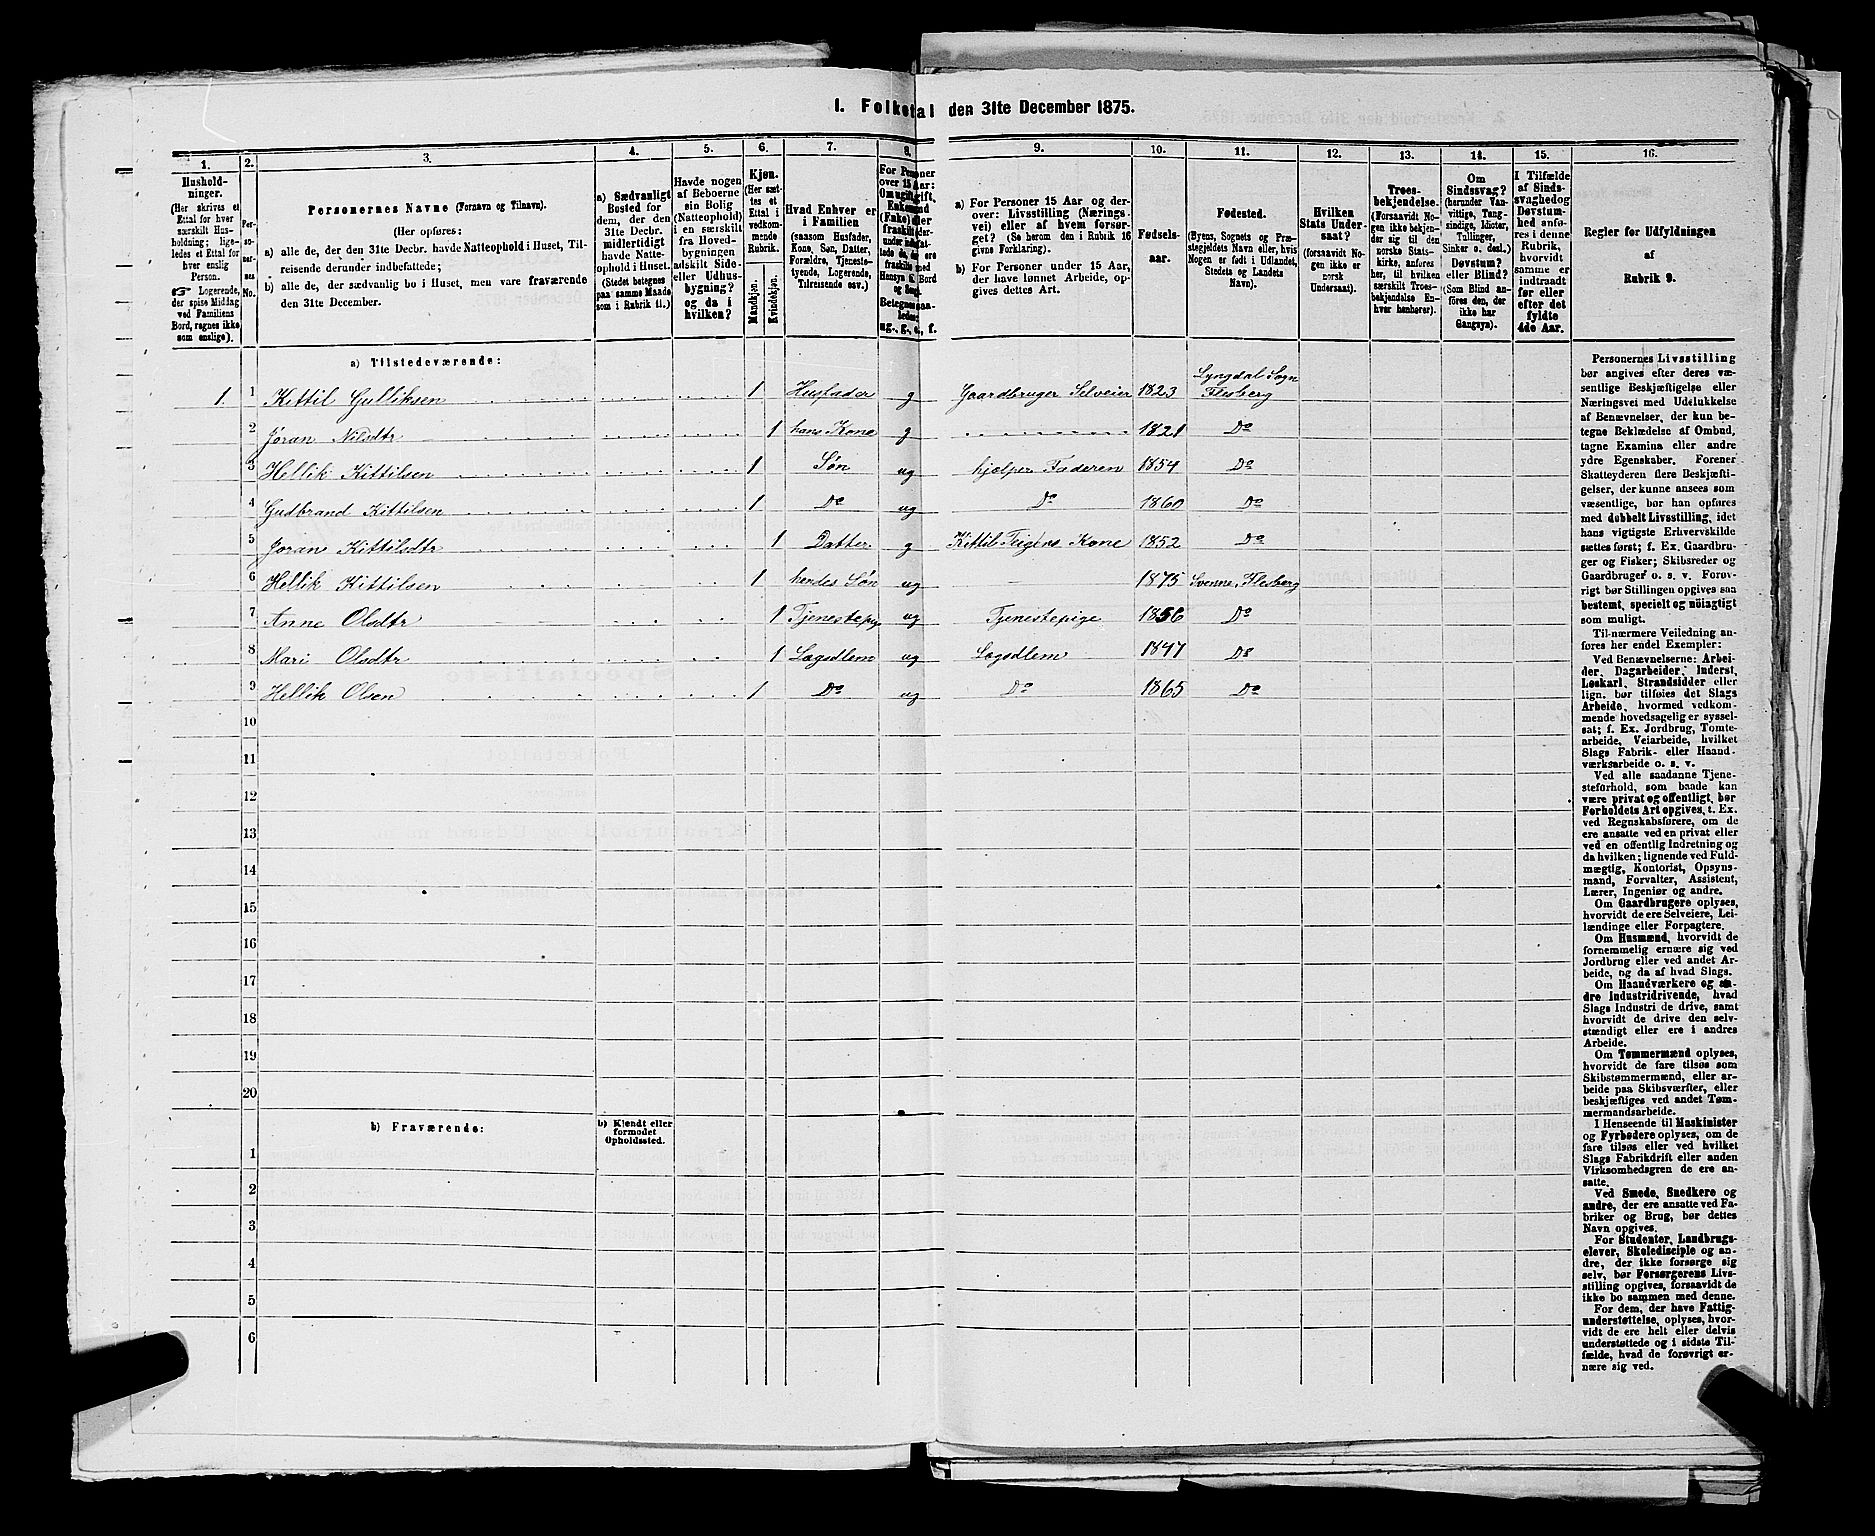 1. Folketal den 31te December 1875.
1. 2. 3. 4. 5. 6. 7. 8. 9. 10. 11. 12. 13. 14. 15. 16.
Husholdninger.
(Her skrives et
Ettal for hver
særskilt Husholdning; ligeledes et Ettal for
hver enslig
Person.
☞ Logerende,
der spise Middag
ved Familiens
Bord, regnes ikke
som enslige).
Personernes No.
Personernes Navne (Fornavn og Tilnavn).
(Her opføres:
a) alle de, der den 31te Decbr. havde Natteophold i Huset, Tilreisende derunder indbefattede;
b) alle de, der sædvanlig bo i Huset, men vare fraværende
den 31te December.
a) Sædvanligt
Bosted for
dem, der den
31te Decbr.
midlertidigt
havde Natteophold i Huset.
(Stedet betegnes
paa samme Maade
som i Rubrik 11.)
Havde nogen
af Beboerne
sin Bolig
(Natteophold)
i en særskilt
fra Hovedbygningen
adskilt Side- eller Udhusbygning?
og da i
hvilken?
Kjøn.
(Her sættes et
Ettal i
vedkommende
Rubrik.
Mandkjøn.
Kvindekjøn.
Hvad Enhver er
i Familien
(saasom Husfader,
Kone, Søn, Datter,
Forældre, Tjenestetyende, Logerende,
Tilreisende osv.)
For Personer
over 15 Aar:
ug., g., e., f.
a) For Personer 15 Aar og derover: Livsstilling (Næringsvei) eller af hvem forsørget? (Se herom den i Rubrik 16
givne Forklaring).
b) For Personer under 15 Aar,
der have lønnet Arbeide, opgives dettes Art.
Fødselsaar.
Fødested.
(Byens, Sognets og Præstegjeldets Navn eller, hvis
Nogen er født i Udlandet,
Stedets og Landets
Navn).
Hvilken
Stats Undersaat?
(forsaavidt Nogen ikke er
norsk
Undersaat).
Troesbekjendelse.
(Forsaavidt Nogen ikke bekjender sig til den
norske Statskirke, anføres
her, til hvilken
særskilt Troesbekjendelse Enhver henhører).
Om
Sindssvag?
(herunder Vanvittige, Tungsindige, Idioter,
Tullinger,
Sinker o. desl.)
Døvstum?
eller Blind?
(Som Blind anføres den, der
ikke har
Gangsyn).
I Tilfælde
af Sindssvaghed og
Døvstumhed anføres i denne
Rubrik,
hvorvidt
samme er
indtraadt
før eller
efter det
fyldte
4de Aar.
Regler for Udfyldningen
af
Rubrik 9.
a) Tilstedeværende:
1. 1 Kittil Gulliksen 1 Husfader g Gaardbruger Selveier 1823 Lyngdal Sogn Flesberg
2 Jøran Nilsdtr 1 hans Kone g 1821 Do
3 Hellik Kittilsen 1 Søn ug hjælper Faderen 1854 Do
4 Gudbrand Kittilsen 1 Do ug Do 1860 Do
5 Jøran Kittilsdtr 1 Datter g Kittil Teigens Kone 1852 Do
6 Hellik Kittilsen 1 hendes Søn ug 1875 Svenne, Flesberg
7 Anne Olsdtr 1 Tjenestepig ug Tjenestepige 1856 Do
8 Mari Olsdtr 1 Lægdlem ug Lægdlem 1847 Do
9 Hellik Olsen 1 Do ug Do 1865 Do
10
11
12
13
14
15
16
17
18
19
20
b) Fraværende:
b) Kjendt eller
formodet
Opholdssted.
1
2
3
4
5
6
Personernes Livsstilling
bør angives efter deres væsentlige Beskjæftigelse eller
Næringsvei med Udelukkelse
af Benævnelser, der kun betegne Beklædelse af Ombud,
tagne Examina eller andre
ydre Egenskaber. Forener
Skatteyderen flere Beskjæftigelser, der kunne ansees som
væsentlige, bør han opføres
med dobbelt Livsstilling, idet
hans vigtigste Erhvervskilde
sættes først; f. Ex. Gaardbruger og Fisker; Skibsreder og
Gaardbruger o. s. v. Forøvrigt bør Stillingen opgives saa
bestemt, specielt og nøiagtigt
som muligt.
Til nærmere Veiledning anføres her endel Exempler:
Ved Benævnelserne: Arbeider, Dagarbeider, Inderst,
Løskarl, Strandsidder eller
lign. bør tilføies det Slags
Arbeide, hvormed vedkommende hovedsagelig er sysselsat; f. Ex. Jordbrug, Tomtearbeide, Veiarbeide, hvilket
Slags Fabrik- eller Haandværksarbeide o. s. v.
Ved alle saadanne Tjenesteforhold, som baade kan
være privat og offentligt, bør
Forholdets Art opgives, t. Ex.
ved Regnskabsførere, om de
ere ansatte ved en privat eller
ved en offentlig Indretning og
da hvilken; lignende ved Fuldmægtig, Kontorist, Opsynsmand, Forvalter, Assistent,
Lærer, Ingeniør og andre.
Om Gaardbrugere oplyses,
hvorvidt de ere Selveiere, Leilændinge eller Forpagtere.
Om Husmænd, hvorvidt de
fornemmelig ernære sig ved
Jordbrug eller ved andet Arbeide, og da af hvad Slags.
Om Haandværkere og andre Industridrivende, hvad
Slags Industri de drive, samt
hvorvidt de drive den selvstændigt eller ere i andres
Arbeide.
Om Tømmermænd oplyses,
hvorvidt de fare tilsøs som
Skibstømmermænd, eller arbeide paa Skibsværfter, eller
beskjæftiges ved andet Tømmermandsarbeide.
I Henseende til Maskinister
og Fyrbødere oplyses, om de
fare tilsøs eller ved hvilket
Slags Fabrikdrift eller anden
Virksomhedsgren de ere ansatte.
Ved Smede, Snedkere og
andre, der ere ansatte ved Fabriker og Brug, bør dettes
Navn opgives.
For Studenter, Landbrugselever, Skoledisciple og andre, der ikke forsørge sig
selv, bør Forsørgerens Livsstilling opgives, forsaavidt de
ikke bo sammen med denne.
For dem, der have Fattigunderstøttelse, oplyses, hvorvidt de ere helt eller delvis
understøttede og i sidste Tilfælde, hvad de forøvrigt ernære sig ved.